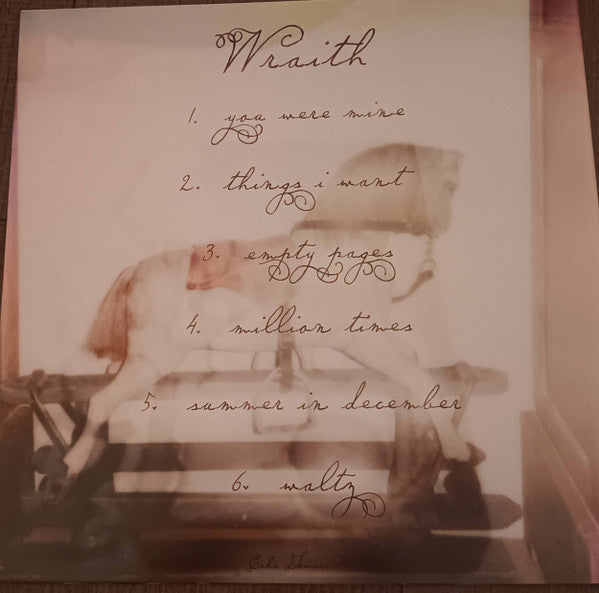 Wraith
1. you were mine
2. things i want
3. empty pages
4. million times
5. summer in december
6. waltz